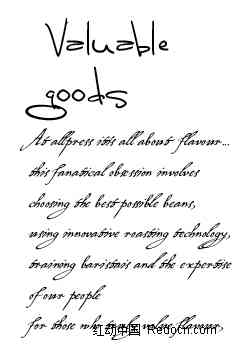 Valuable
goods
At allpress it's all about flavour...
this fanatical obsession involves
choosing the best possible beans,
using innovative roasting technology,
training baristas and the expertise
of our people
for those who truly value flavour,
红动中国 Redocn.com